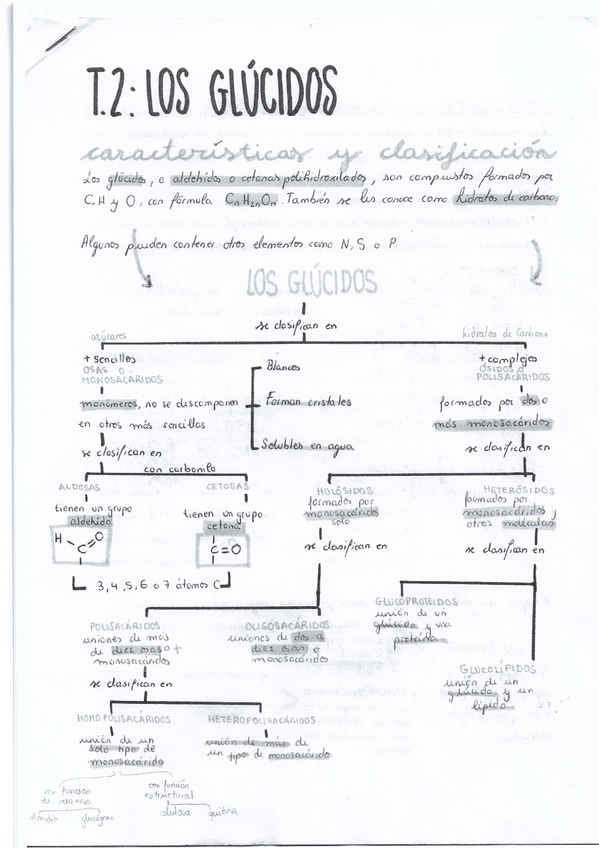 T.2: LOS GLÚCIDOS
características y clasificación
Los glúcidos, o aldehídos o cetonas polihidroxilados, son compuestos formados por
C, H y O, con fórmula CnH2nOn. También se les conoce como hidratos de carbono.
Algunos pueden contener otros elementos como N, S o P.
LOS GLÚCIDOS
se clasifican en
azúcares
hidratos de Carbono
+ sencillos
OSAS O
MONOSACÁRIDOS
monómeros, no se descomponen
en otros más sencillos
Blancos
Forman cristales
Solubles en agua
+ complejos
ÓSIDOS O
POLISACÁRIDOS
formados por dos o
más monosacáridos
se clasifican en
con carbonilo
se clasifican en
ALDOSAS
tienen un grupo
aldehído
H
C
O
CETOSAS
tienen un grupo
cetona
C=O
3, 4, 5, 6 o 7 átomos C
HOLÓSIDOS
formados por
monosacárido
solo
se clasifican en
HETERÓSIDOS
formados por
monosacáridos y
otras moléculas
se clasifican en
POLISACÁRIDOS
uniones de más
de diez osas o +
monosacáridos
se clasifican en
OLIGOSACÁRIDOS
uniones de dos a
diez osas o
monosacáridos
GLUCOPROTEIDOS
unión de un
glúcido y una
proteína
GLUCOLÍPIDOS
unión de un
glúcido y un
lípido
HOMOPOLISACÁRIDOS
unión de un
solo tipo de
monosacárido
HETEROPOLISACÁRIDOS
unión de más de
un tipo de monosacárido
con función
de reserva
almidón
glucógeno
con función
estructural
celulosa
quitina